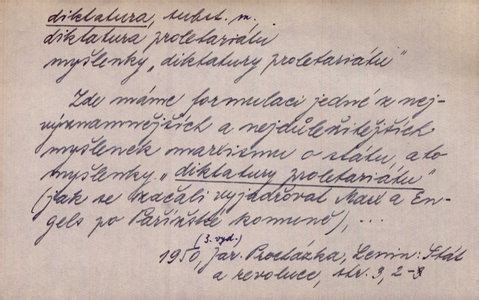 diktatura, subst. m.
diktatura proletariátu
myšlenky „diktatury proletariátu"
Zde máme formulaci jedné z nej-
významnějších a nejdůležitějších
myšlenek marxismu o státu, a to
myšlenky „diktatury proletariátu"
(jak se začali vyjadřovat Marx a En-
gels po Pařížské komuně), ...
(3. vyd.)
1950, Jar. Procházka, Lenin: Stát
a revoluce, str. 3, 2-8